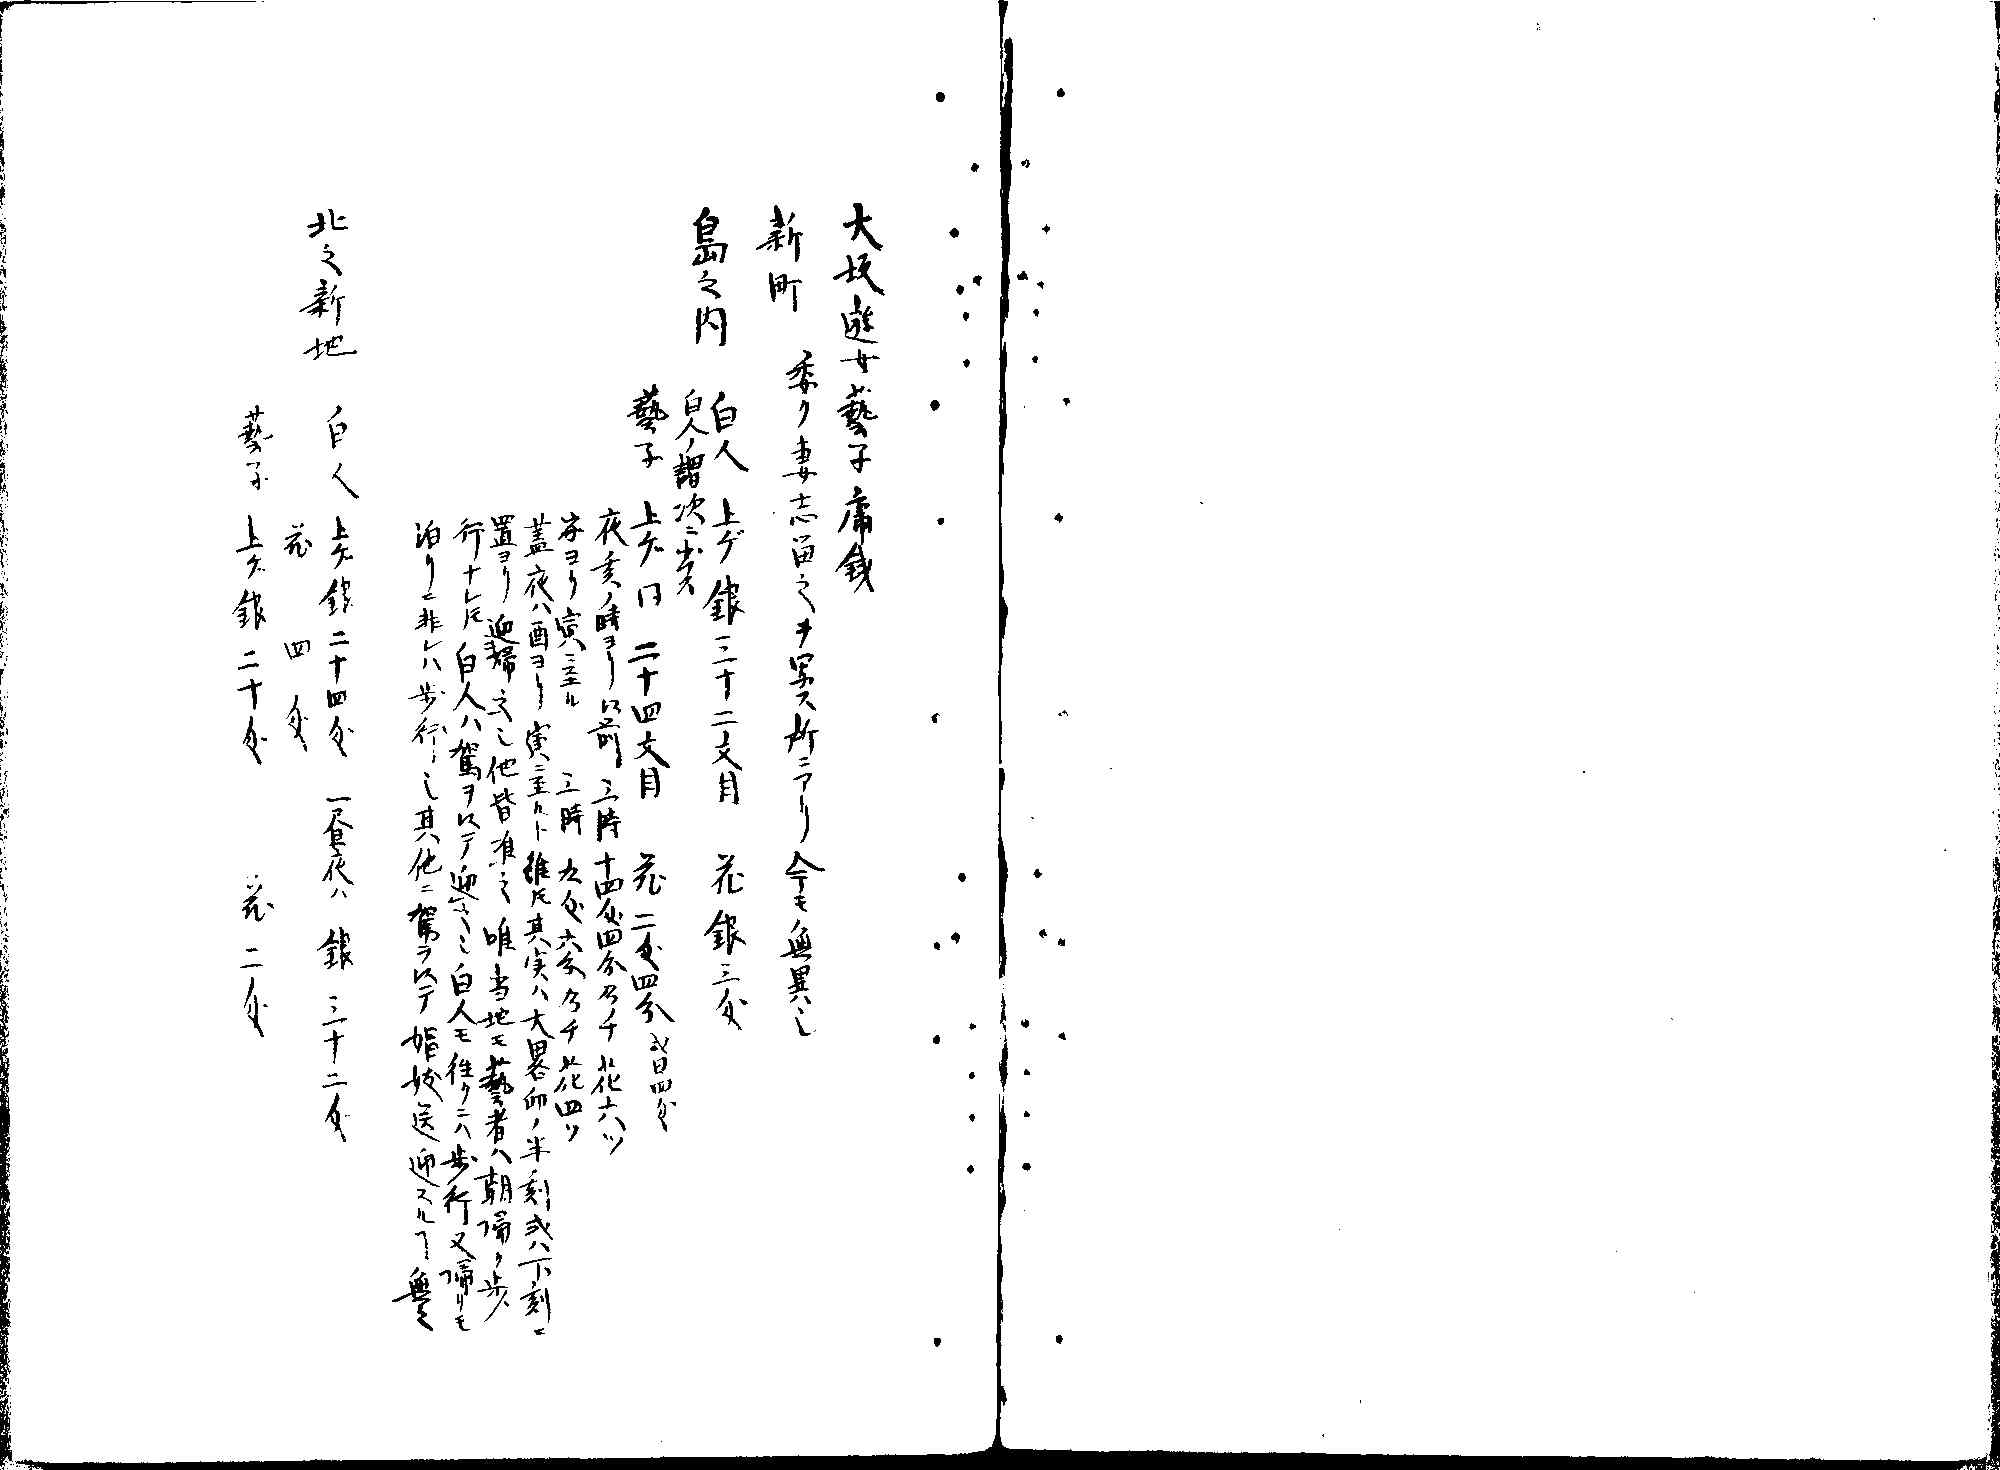 大坂遊女藝子庸銭
新町 委ク妻志畄之ヲ写ス所ニアリ今モ無異也
島之内 白人 上ゲ銀三十二文目 花銀三匁
白人ノ謂次ニ出ス
藝子 上ゲ同 二十四文目 花二匁四分 或曰四匁
夜亥ノ時ヨリ以前 三時 十四匁四分乃チ花六ツ
亥ヨリ寅ニ至ル 三時 九匁六分乃チ花四ツ
蓋夜ハ酉ヨリ寅ニ至ルト雖ドモ其実ハ大畧卯ノ半刻或ハ下刻ニ
置ヨリ迎帰之也他皆准之唯当地モ藝者ハ朝帰リ歩
行ナレドモ白人ハ駕ヲ以テ迎之也白人モ往クニハ歩行又帰リモ
泊リニ非レハ歩行也其他ニ駕ヲ以テ娼妓送迎スルヿ無之
北之新地 白人 上ゲ銀二十四匁 一昼夜ハ銀三十二匁
花 四匁
藝子 上ゲ銀二十匁 花二匁